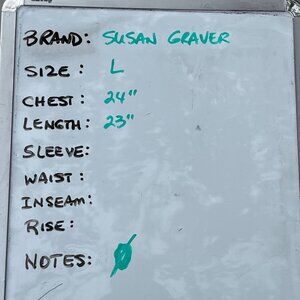 BRAND: SUSAN GRAVER
SIZE: L
CHEST: 24"
LENGTH: 23"
SLEEVE:
WAIST:
INSEAM:
RISE:
NOTES: Ø